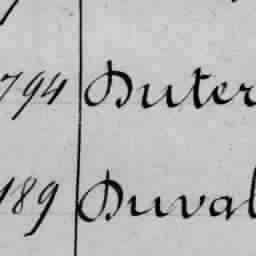 794 Duter
189 Duval